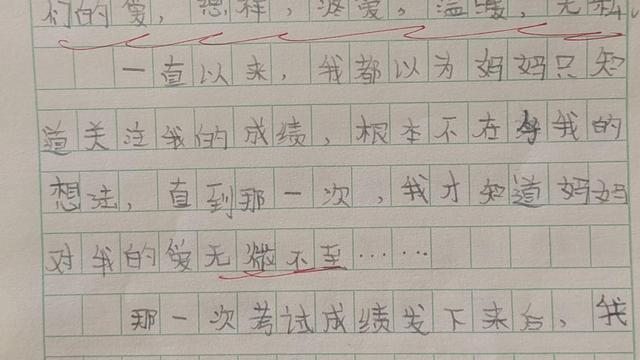 们的爱，慈祥，疼爱，温暖，无私，
一直以来，我都以为妈妈只知
道关注我的成绩，根本不在乎我的
想法，直到那一次，我才知道妈妈
对我的爱无微不至……
那一次考试成绩发下来后，我